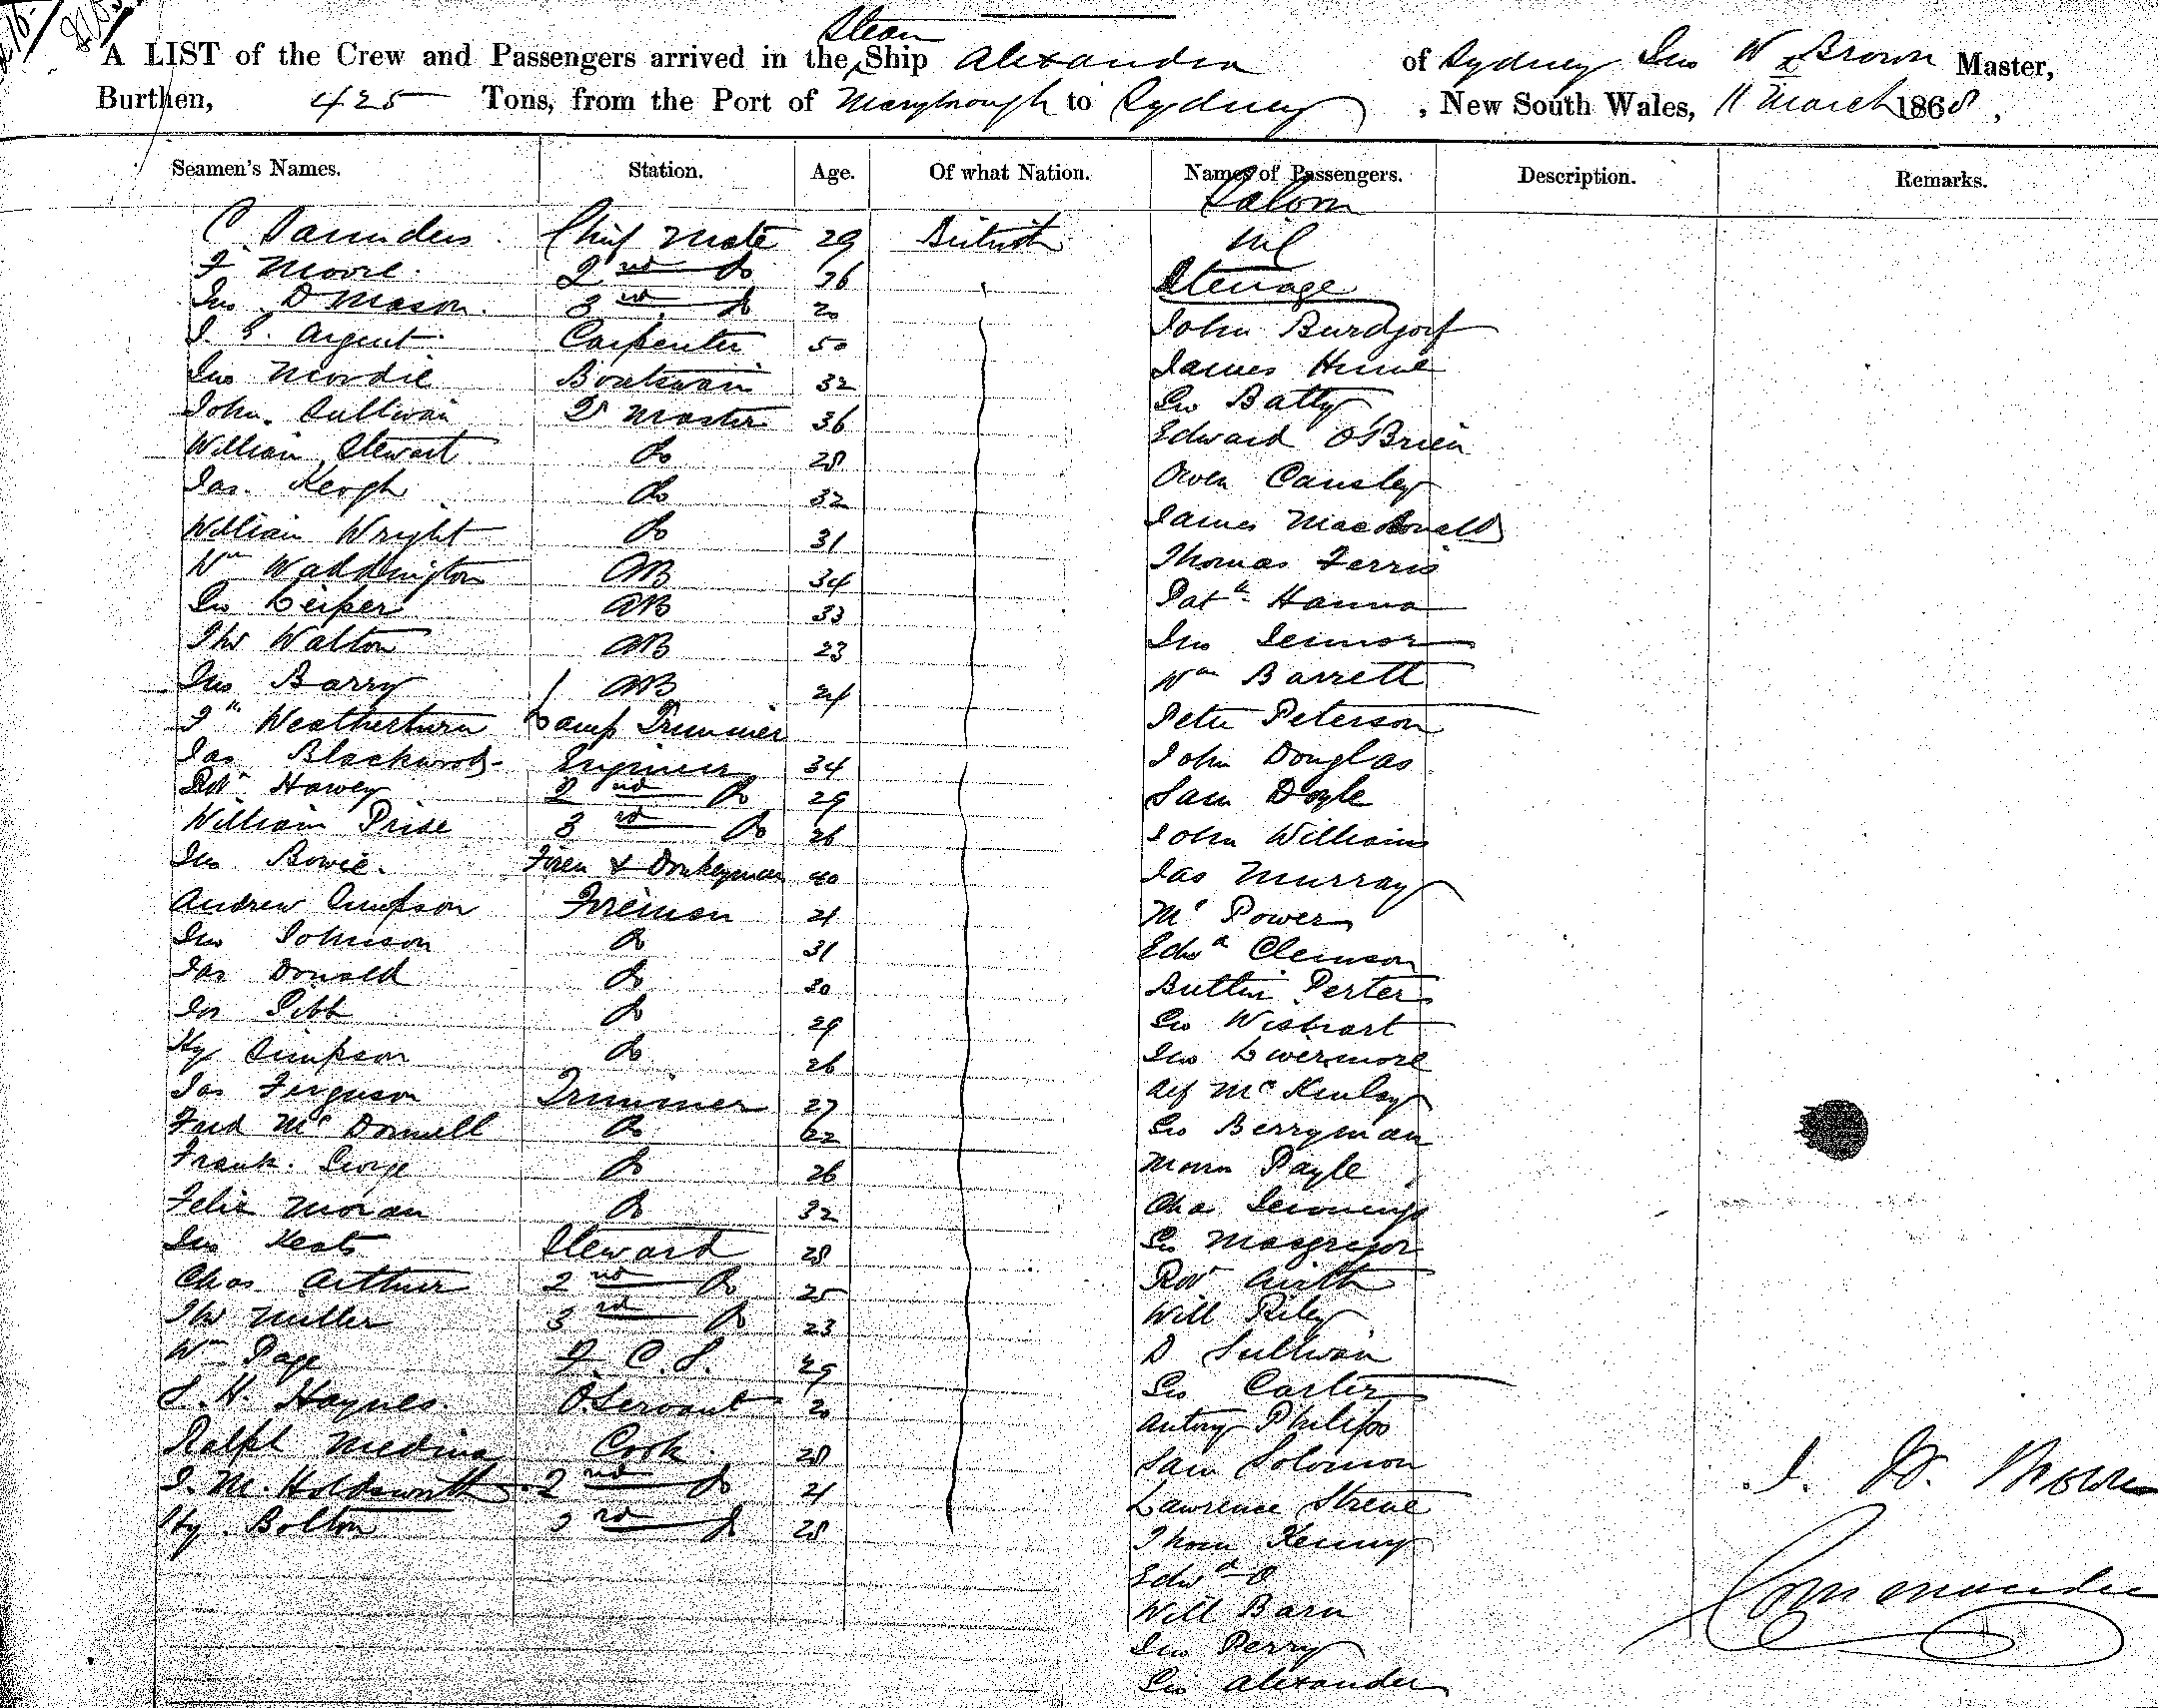 Steam
A LIST of the Crew and Passengers arrived in the Ship Alexandra of Sydney Jno W Brown Master,
Burthen, 425 Tons, from the Port of Marybrough to Sydney, New South Wales, 11 March 1868,
Seamen's Names. Station. Age. Of what Nation. Names of Passengers. Description. Remarks.
Saloon
C Saunders Chief Mate 29 British Nil
F Moore 2nd Do 36 Steerage
Jno D Mason 3rd Do 20 John Burdjorf
J. G. Argent Carpenter 50 James Hume
Jno Mordie Boatswain 32 Geo Batty
John Sullivan Qr Master 36 Edward O'Brien
William Stewart Do 28 Owen Causley
Jas. Keogh Do 32 James MacDonald
William Wright Do 31 Thomas Ferris
Wm Waddington AB 34 Patk Hanna
Geo Leiper AB 33 Jno
Thos Walton AB 23 Wm Barrett
Jno Barry AB 24 Peter Peterson
Weatherturn Lamp Trimmer
Jas Blackwood Engineer 34 John Douglas
Robt Howey 2nd Do 29 Sam Doyle
William Pride 3rd Do 26 John Williams
Jno Bowie. Firen & Donkeyman 40 Jas Murray
Andrew Simpson Fireman 21 Mc Power
Jno Johnson Do 31 Edwd Clemson
Jas Donald Do 30 Porter
Jos Do 29 Geo Wishart
Hy Simpson Do 26 Jno Livermore
Jas Ferguson Trimmer 27 Alf McKinlay
Fred McDonnell Do 22 Geo Berryman
Frank George Do 26 Payle
Felix Moran Do 32 Chas Jennings
Jno Keats Steward 28 Geo Macgregor
Chas Arthur 2nd Do 25 Robt Airth
Thos Miller 3rd Do 23 Will Riley
Wm Page F. C. S. 29 D Sullivan
S. H. Haynes O Servant 20 Geo Carter
Ralph Medina Cook 28 Antony Philips
J. M. Holdsworth 2nd Do 21 Sam Solomon
Hy. Bolton 3rd Do 28 Lawrence Strene
Thom Kenny
Edwd O
Will Barn
Jno Perry
Geo Alexander
J. W. Brown
Commander